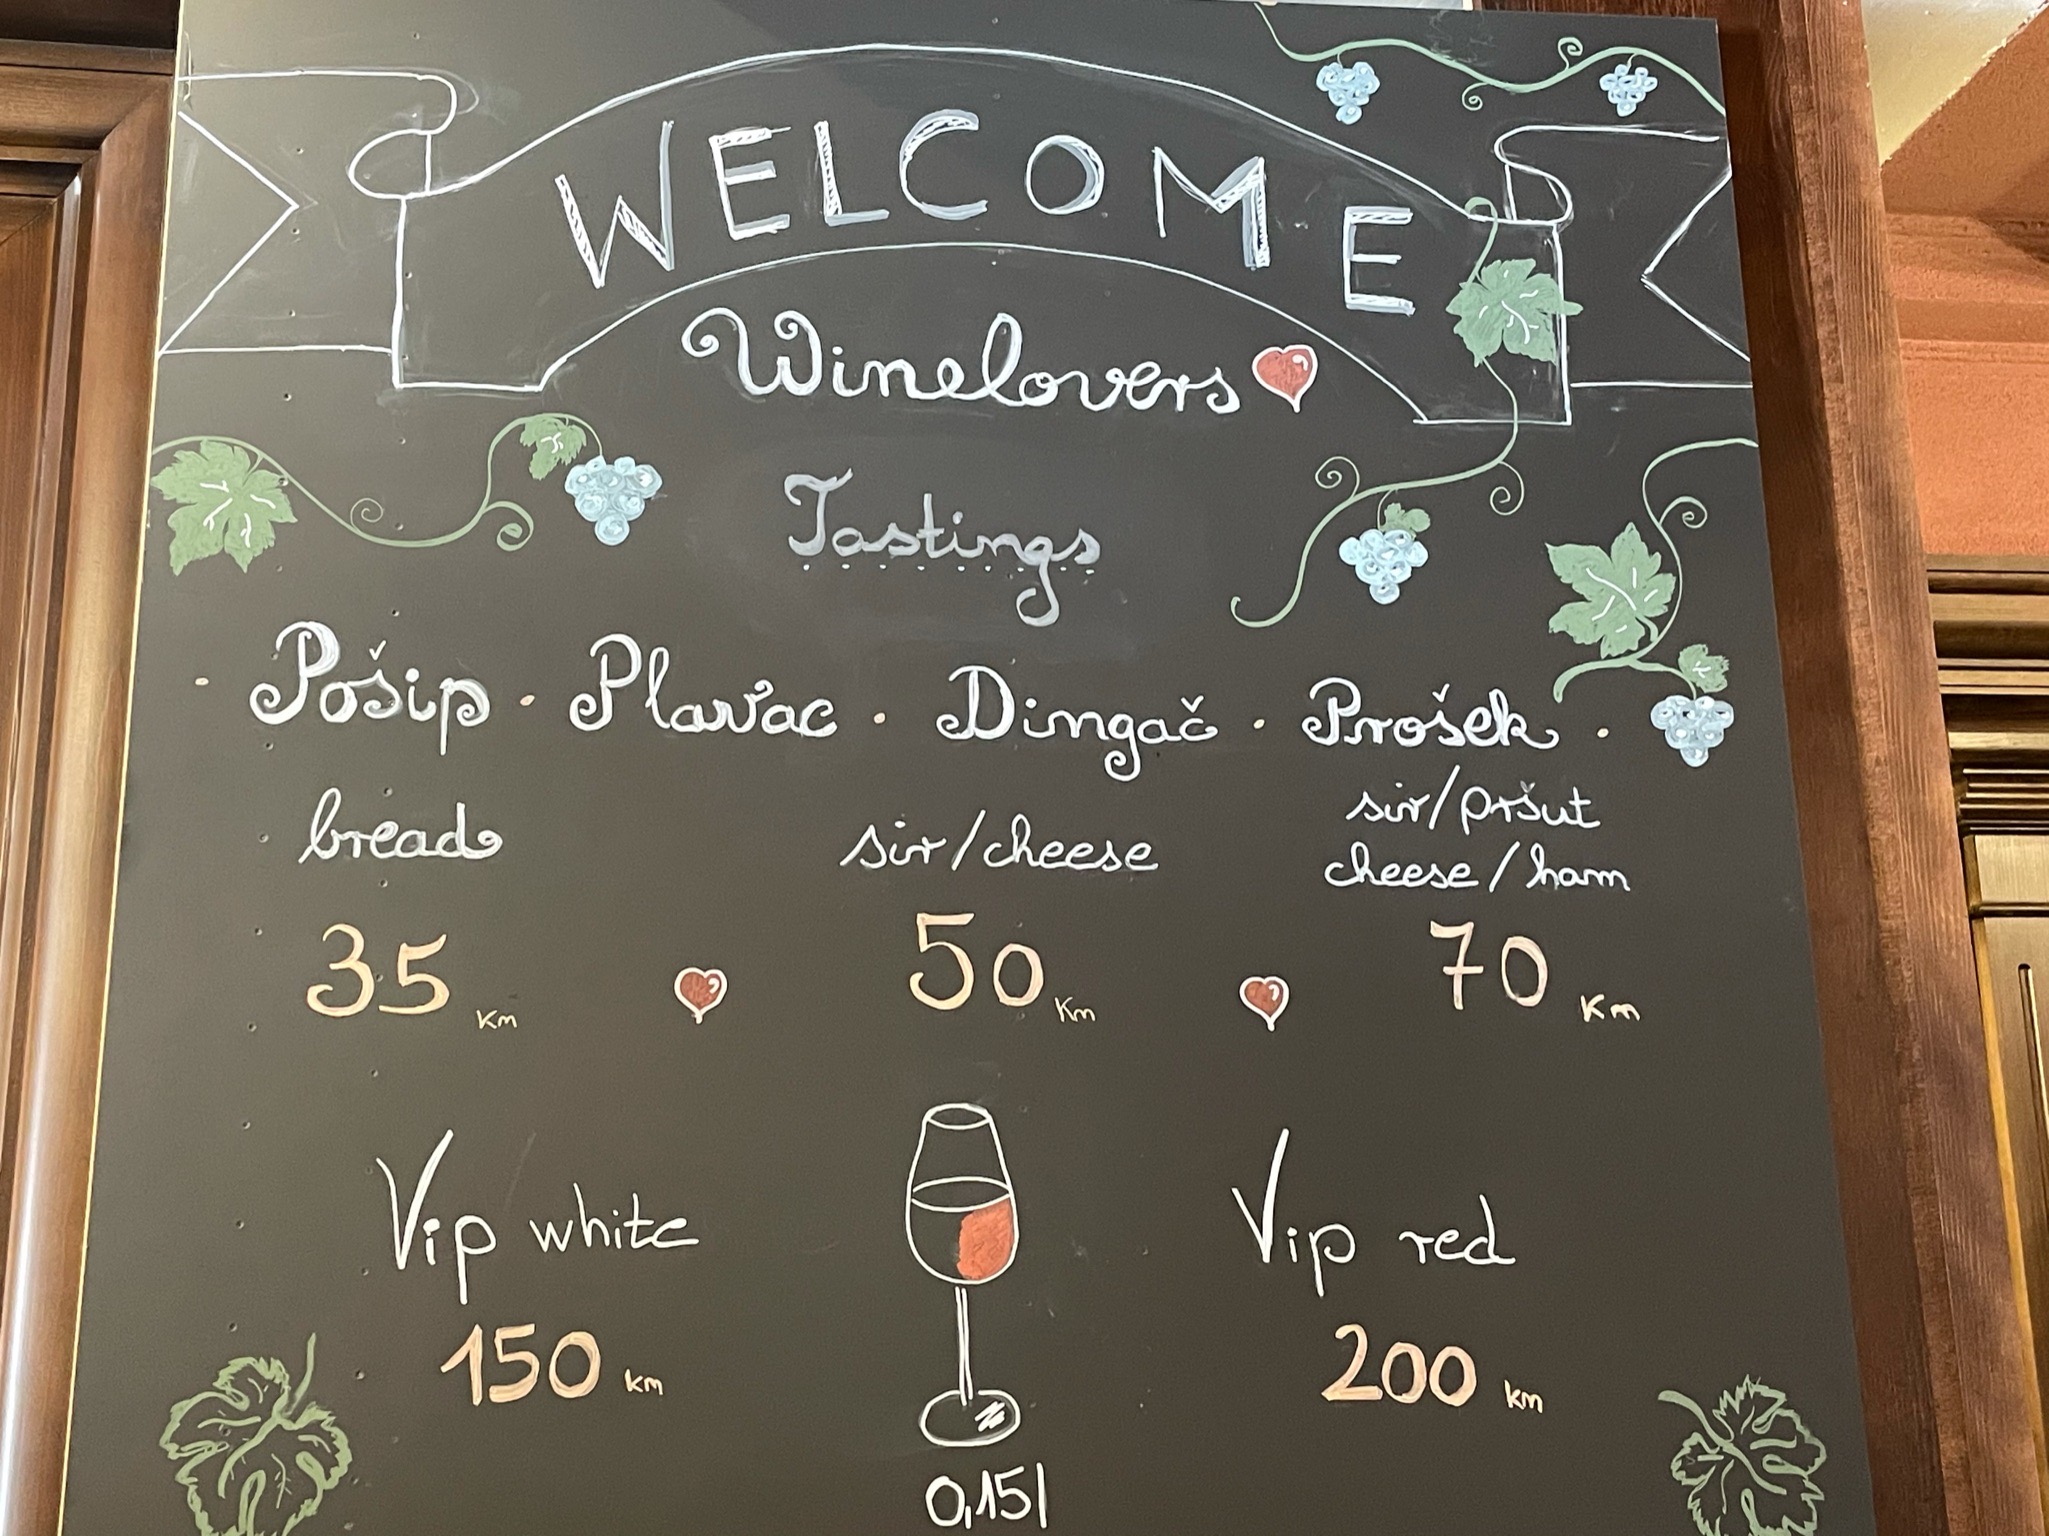 WELCOME
Winelovers
Tastings
· Pošip · Plavac · Dingač · Prošek ·
bread sir/cheese sir/pršut
cheese/ham
35 Km 50 Km 70 Km
Vip white Vip red
150 Km 200 Km
0,15l